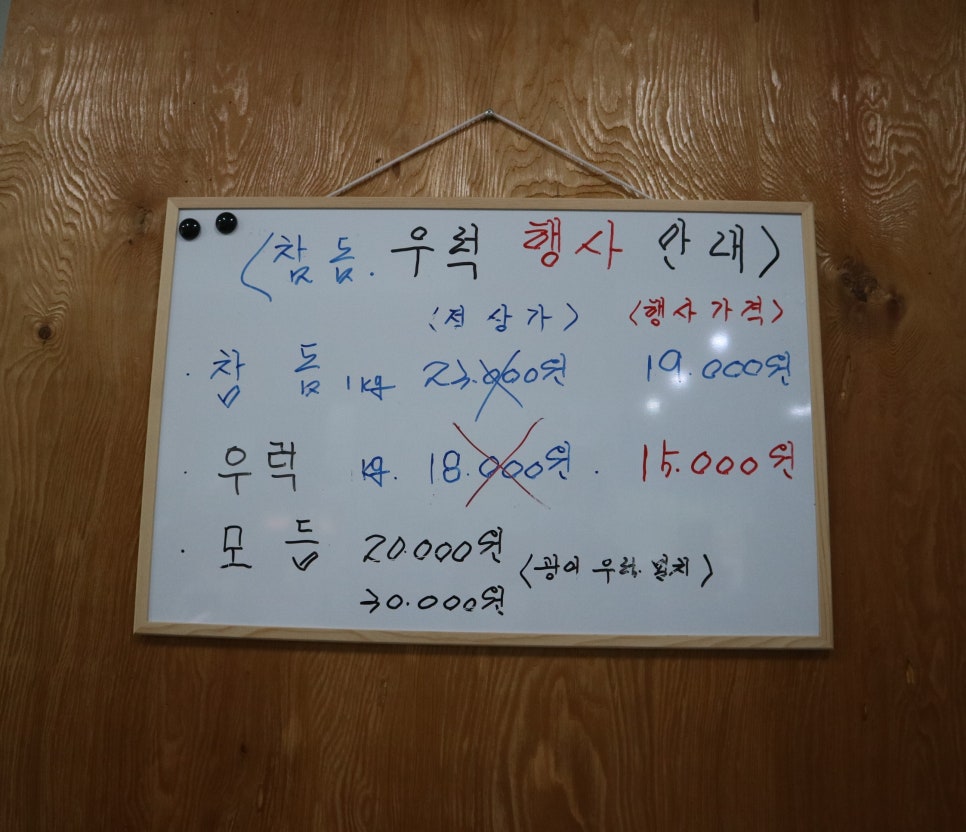 (참돔. 우럭 행사 안내)
<정상가> <행사가격>
· 참돔 1kg 23.000원 19.000원
· 우럭 kg. 18.000원. 15.000원
· 모듬 20.000원
<광어 우럭. 멸치>
30.000원